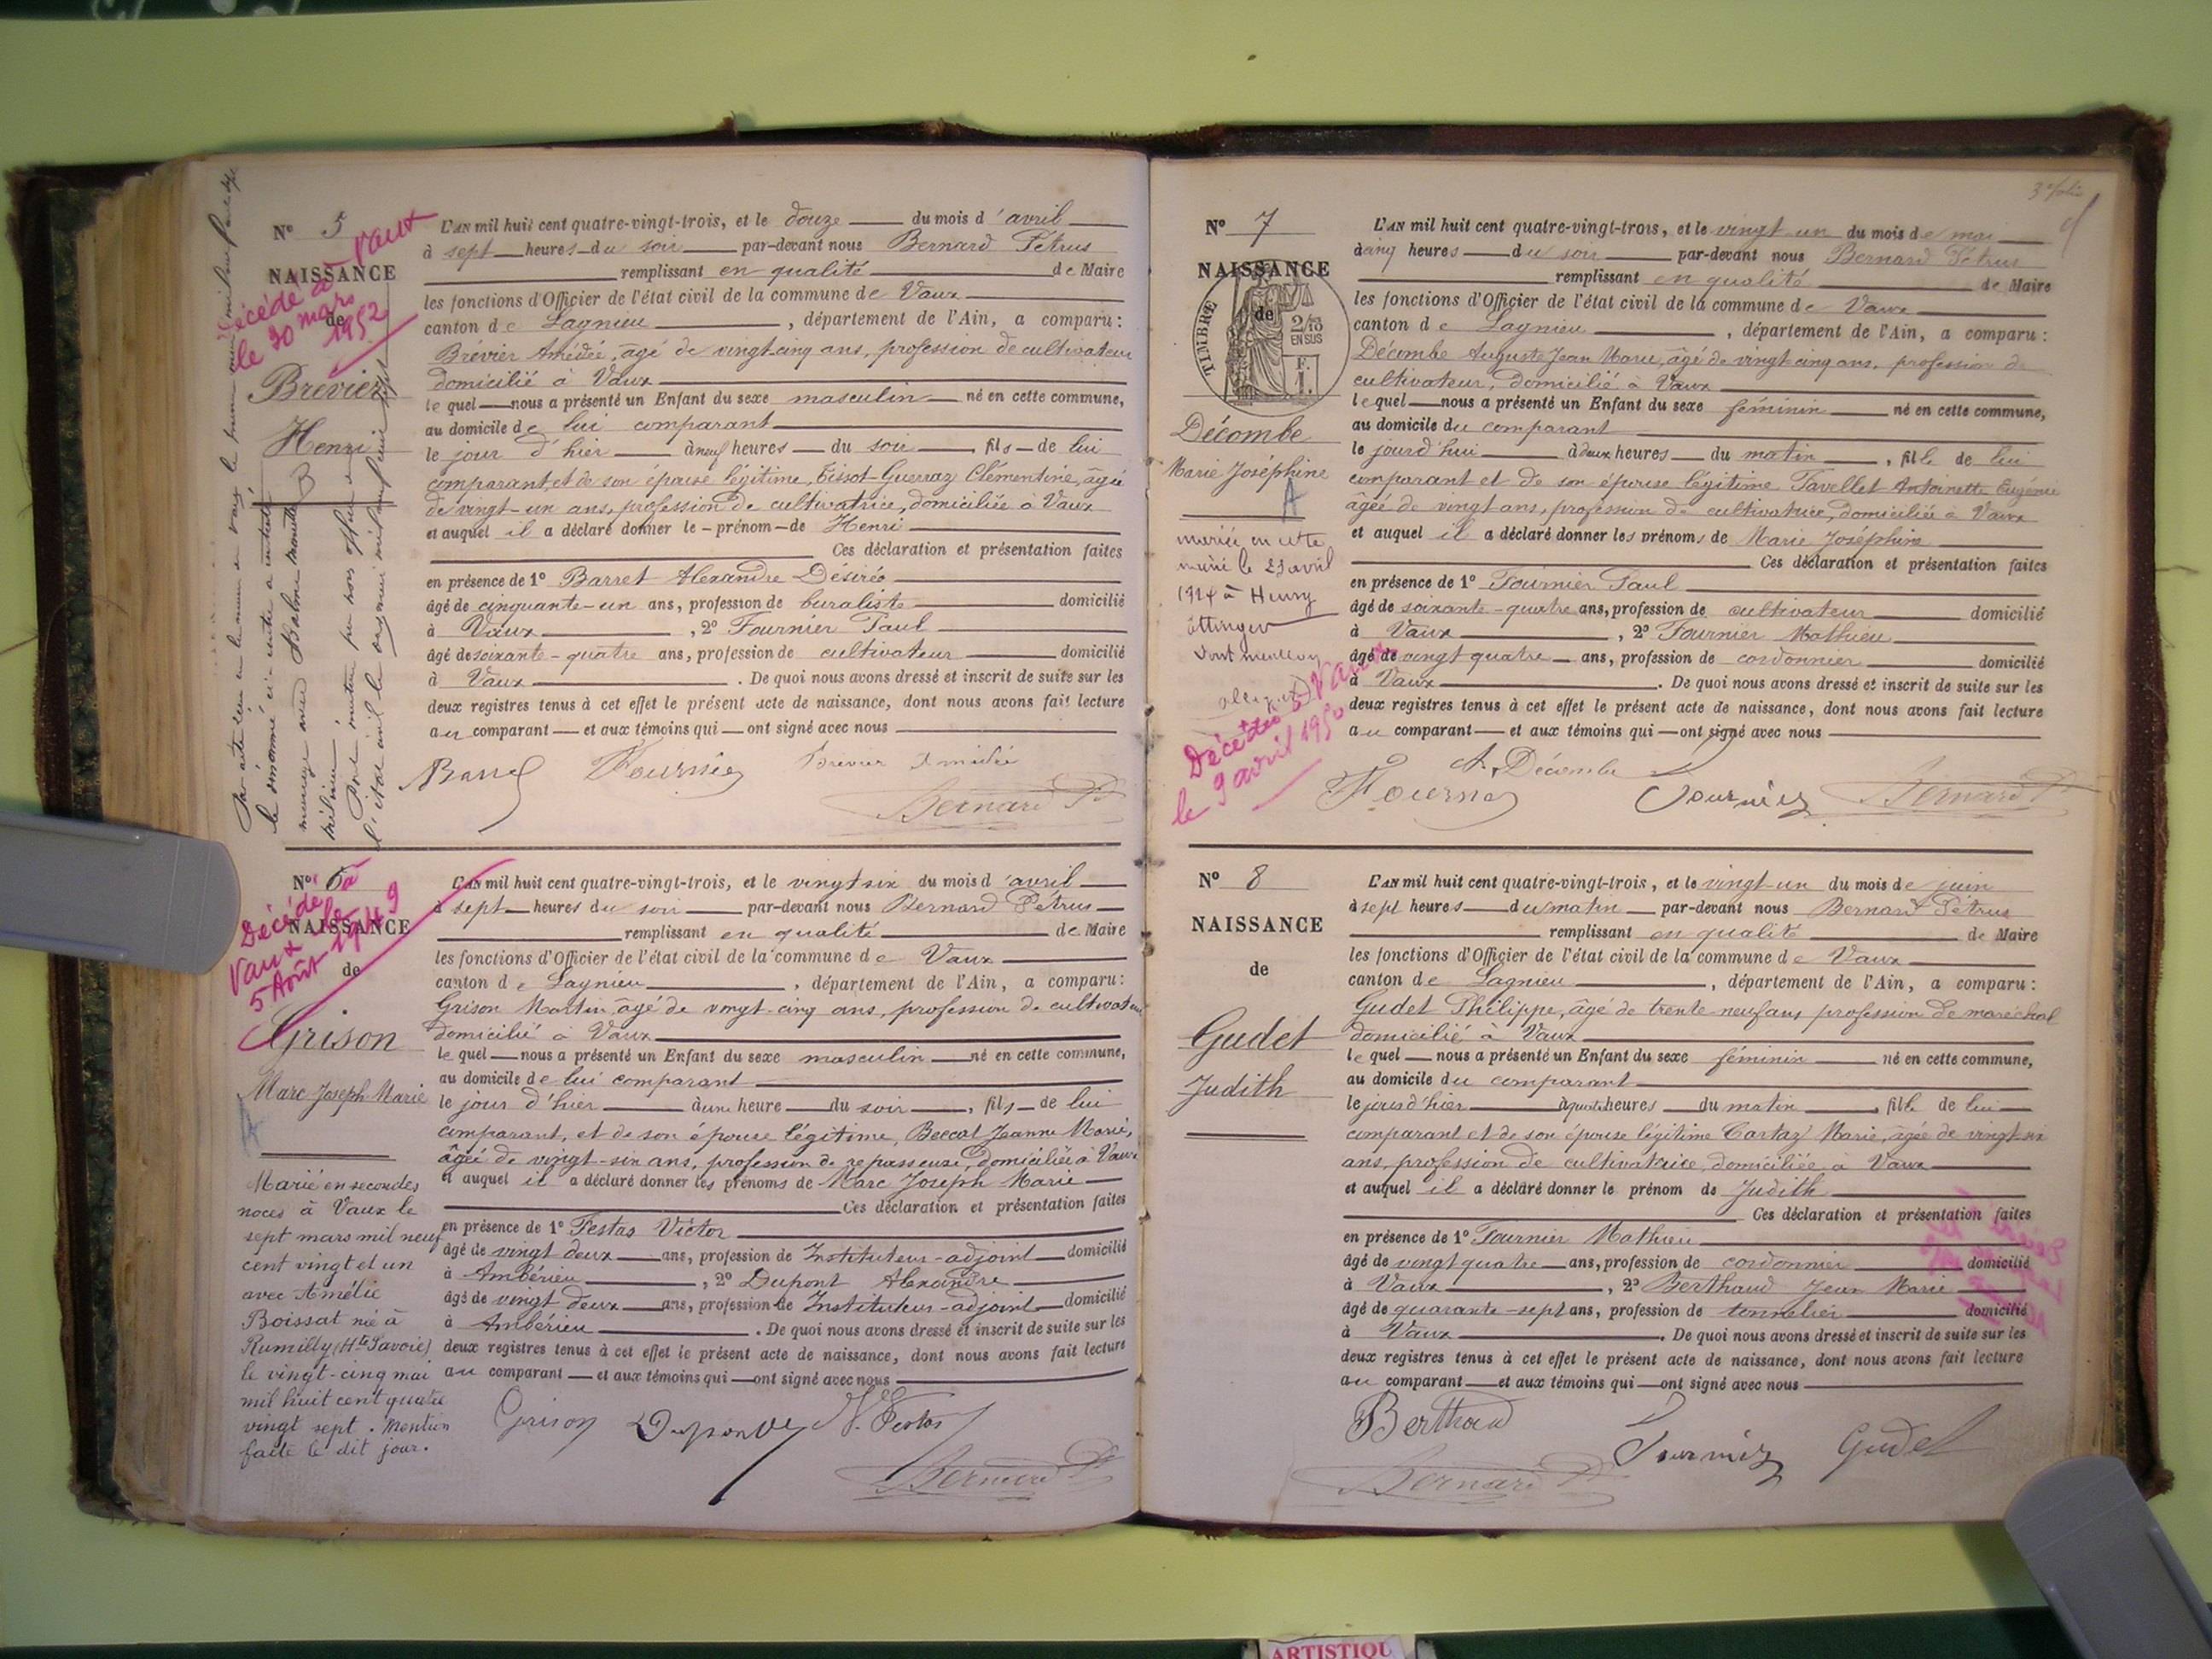 N° 5
NAISSANCE
de
Brévier
Henri
Décédé à Vaux
le 30 mars
1952
L'AN mil huit cent quatre-vingt-trois, et le douze du mois d'avril
à sept heures du soir par-devant nous Bernard Pétrus
remplissant en qualité de Maire
les fonctions d'Officier de l'état civil de la commune de Vaux
canton de Lagnieu, département de l'Ain, a comparu :
Brévier Amédée, âgé de vingt-cinq ans, profession de cultivateur
domicilié à Vaux
lequel nous a présenté un Enfant du sexe masculin né en cette commune,
au domicile de lui comparant
le jour d'hier à neuf heures du soir, fils de lui
comparant, et de son épouse légitime, Tissot-Guerraz Clémentine, âgée
de vingt-un ans, profession de cultivatrice, domiciliée à Vaux
et auquel il a déclaré donner le prénom de Henri
Ces déclaration et présentation faites
en présence de 1° Barret Alexandre Désiré
âgé de cinquante-un ans, profession de buraliste domicilié
à Vaux, 2° Fournier Paul
âgé de soixante-quatre ans, profession de cultivateur domicilié
à Vaux. De quoi nous avons dressé et inscrit de suite sur les
deux registres tenus à cet effet le présent acte de naissance, dont nous avons fait lecture
au comparant et aux témoins qui ont signé avec nous
Fournier Brévier Amédée
Bernard P.
N° 6
NAISSANCE
de
Grison
Marc-Joseph-Marie
A
Décédé à
Vaux le
5 Août 1949
Marié en secondes
noces à Vaux le
sept mars mil neuf
cent vingt et un
avec Amélie
Boissat née à
Rumilly (Hte Savoie)
le vingt-cinq mai
mil huit cent quatre
vingt sept. Mention
faite le dit jour.
L'AN mil huit cent quatre-vingt-trois, et le vingt six du mois d'avril
à sept heures du soir par-devant nous Bernard Pétrus
remplissant en qualité de Maire
les fonctions d'Officier de l'état civil de la commune de Vaux
canton de Lagnieu, département de l'Ain, a comparu :
Grison Martin, âgé de vingt-cinq ans, profession de cultivateur
domicilié à Vaux
lequel nous a présenté un Enfant du sexe masculin né en cette commune,
au domicile de lui comparant
le jour d'hier à une heure du soir, fils de lui
comparant, et de son épouse légitime, Beccat Jeanne Marie,
âgée de vingt-six ans, profession de repasseuse, domiciliée à Vaux
et auquel il a déclaré donner les prénoms de Marc Joseph Marie
Ces déclaration et présentation faites
en présence de 1° Festas Victor
âgé de vingt deux ans, profession de Instituteur-adjoint domicilié
à Ambérieu, 2° Dupont Alexandre
âgé de vingt deux ans, profession de Instituteur-adjoint domicilié
à Ambérieu. De quoi nous avons dressé et inscrit de suite sur les
deux registres tenus à cet effet le présent acte de naissance, dont nous avons fait lecture
au comparant et aux témoins qui ont signé avec nous
Grison Dupont V. Festas
Bernard P.
3e folio
N° 7
NAISSANCE
de
TIMBRE
2/10
EN SUS
F.
1.
Décombe
Marie Joséphine
A
mariée en cette
mairie le 23 avril
1924 à Henry
Ettinger
Dont mention
Décédée à Vaux
le 9 avril 1950
L'AN mil huit cent quatre-vingt-trois, et le vingt un du mois de mai
à cinq heures du soir par-devant nous Bernard Pétrus
remplissant en qualité de Maire
les fonctions d'Officier de l'état civil de la commune de Vaux
canton de Lagnieu, département de l'Ain, a comparu :
Décombe Auguste Jean Marie, âgé de vingt cinq ans, profession de
cultivateur, domicilié à Vaux
lequel nous a présenté un Enfant du sexe féminin né en cette commune,
au domicile du comparant
le jourd'hui à deux heures du matin, fille de lui
comparant et de son épouse légitime Tavellet Antoinette Eugénie
âgée de vingt ans, profession de cultivatrice, domiciliée à Vaux
et auquel il a déclaré donner les prénoms de Marie Joséphine
Ces déclaration et présentation faites
en présence de 1° Fournier Paul
âgé de soixante-quatre ans, profession de cultivateur domicilié
à Vaux, 2° Fournier Mathieu
âgé de vingt quatre ans, profession de cordonnier domicilié
à Vaux. De quoi nous avons dressé et inscrit de suite sur les
deux registres tenus à cet effet le présent acte de naissance, dont nous avons fait lecture
au comparant et aux témoins qui ont signé avec nous
A. Décombe
Fournier Fournier Bernard P.
N° 8
NAISSANCE
de
Gudet
Judith
L'AN mil huit cent quatre-vingt-trois, et le vingt-un du mois de juin
à sept heures du matin par-devant nous Bernard Pétrus
remplissant en qualité de Maire
les fonctions d'Officier de l'état civil de la commune de Vaux
canton de Lagnieu, département de l'Ain, a comparu :
Gudet Philippe, âgé de trente-neuf ans profession de maréchal
domicilié à Vaux
lequel nous a présenté un Enfant du sexe féminin né en cette commune,
au domicile du comparant
le jour d'hier à quatre heures du matin, fille de lui
comparant et de son épouse légitime Cartaz Marie, âgée de vingt-six
ans, profession de cultivatrice, domiciliée à Vaux
et auquel il a déclaré donner le prénom de Judith
Ces déclaration et présentation faites
en présence de 1° Fournier Mathieu
âgé de vingt quatre ans, profession de cordonnier domicilié
à Vaux, 2° Berthaud Jean Marie
âgé de quarante-sept ans, profession de tonnelier domicilié
à Vaux. De quoi nous avons dressé et inscrit de suite sur les
deux registres tenus à cet effet le présent acte de naissance, dont nous avons fait lecture
au comparant et aux témoins qui ont signé avec nous
Berthaud Fournier Gudet
Bernard P.
ARTISTIQU